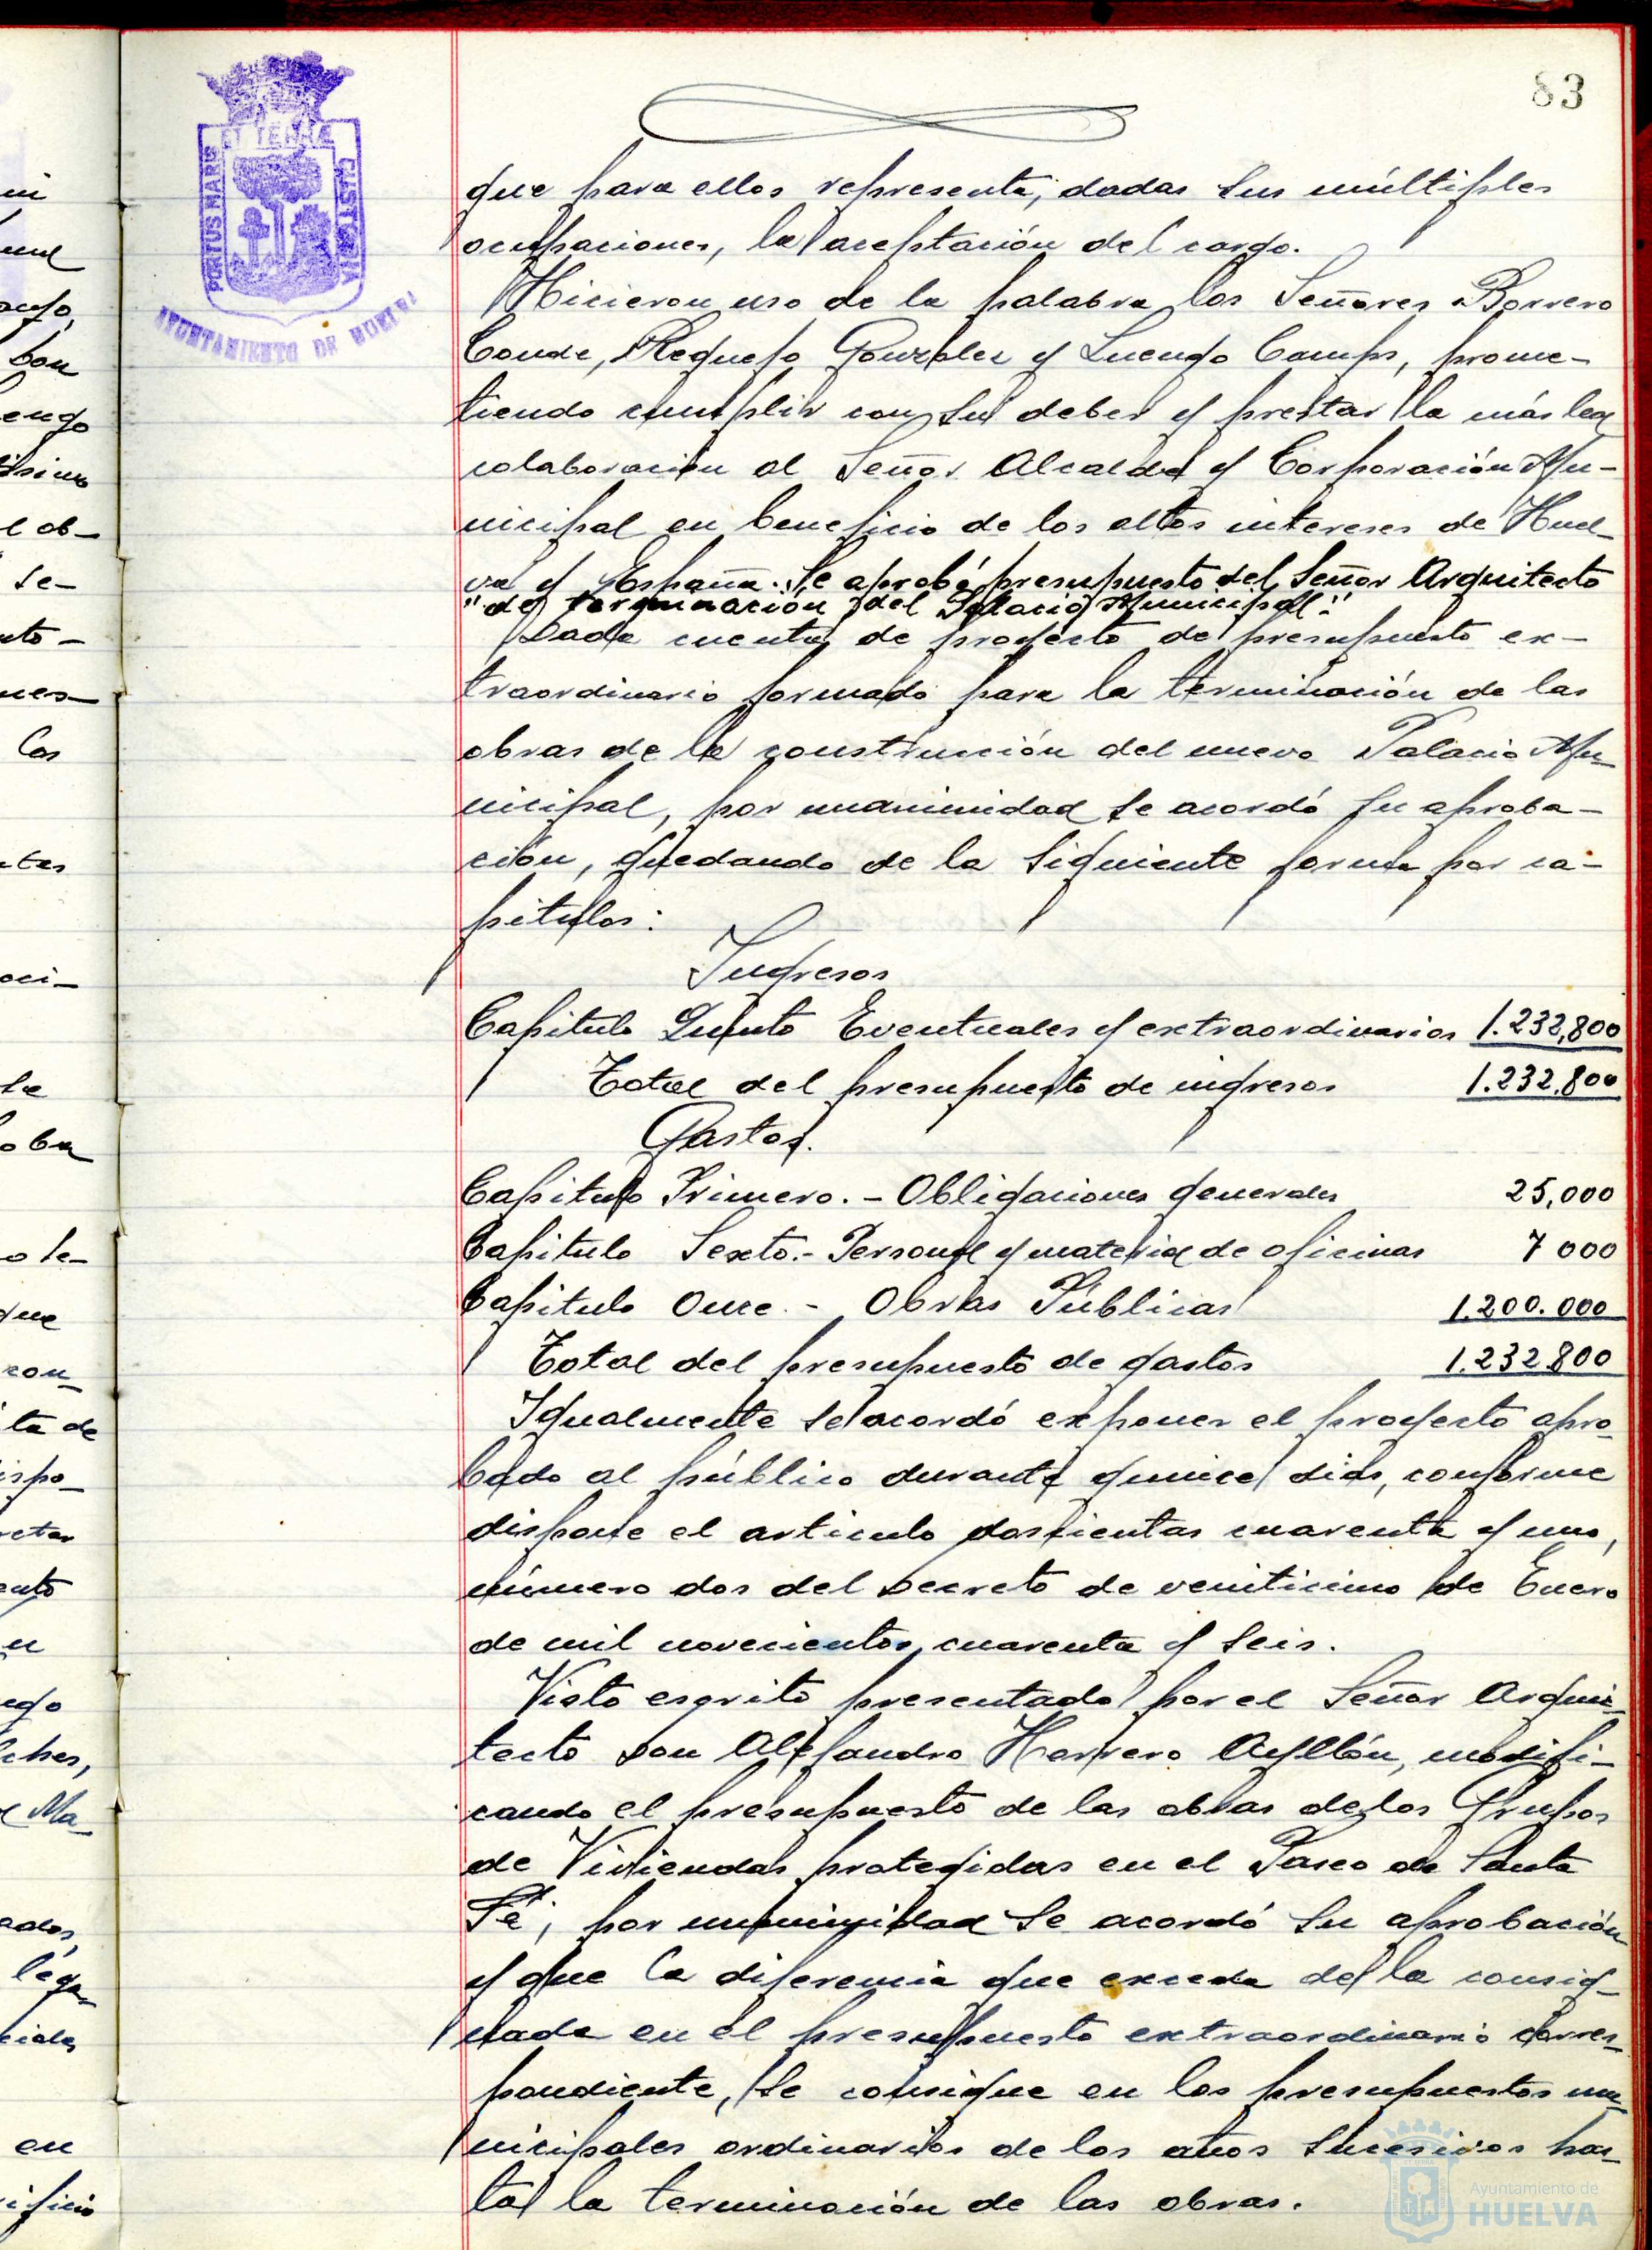 83
PORTUS MARIS ET TERRÆ CUSTODIA
AYUNTAMIENTO DE HUELVA
que para ellos representa, dadas sus múltiples
ocupaciones, la aceptación del cargo.
Hicieron uso de la palabra los Señores Borrero
Conde, Requejo González y Luengo Camps, prome-
tiendo cumplir con su deber y prestar la más leal
colaboración al Señor Alcalde y Corporación Mu-
nicipal en beneficio de los altos intereses de Huel-
va y España. Se aprobó presupuesto del Señor Arquitecto
"de terminación del Palacio Municipal".
Dada cuenta de proyecto de presupuesto ex-
traordinario formado para la terminación de las
obras de la construcción del nuevo Palacio Mu-
nicipal, por unanimidad se acordó su aproba-
ción, quedando de la siguiente forma por ca-
pítulos:
Ingresos
Capitulo Quinto Eventuales y extraordinarios 1.232,800
Total del presupuesto de ingresos 1.232.800
Gastos.
Capitulo Primero. - Obligaciones generales 25,000
Capitulo Sexto.- Personal y material de oficinas 7 000
Capitulo Once. - Obras Públicas 1.200.000
Total del presupuesto de gastos 1.232.800
Igualmente se acordó exponer el proyecto apro-
bado al público durante quince dias, conforme
dispone el articulo doscientas cuarenta y uno,
número dos del Decreto de veinticinco de Enero
de mil novecientos cuarenta y seis.
Visto escrito presentado por el Señor Arqui-
tecto Don Alejandro Herrero Ayllón, modifi-
cando el presupuesto de las obras de los Grupos
de Viviendas protegidas en el Paseo de Santa
Fé, por unanimidad se acordó su aprobación
y que la diferencia que exceda de la consig-
nada en el presupuesto extraordinario corres-
pondiente, se consigne en los presupuestos mu-
nicipales ordinarios de los años sucesivos has-
ta la terminación de las obras.
Ayuntamiento de
HUELVA